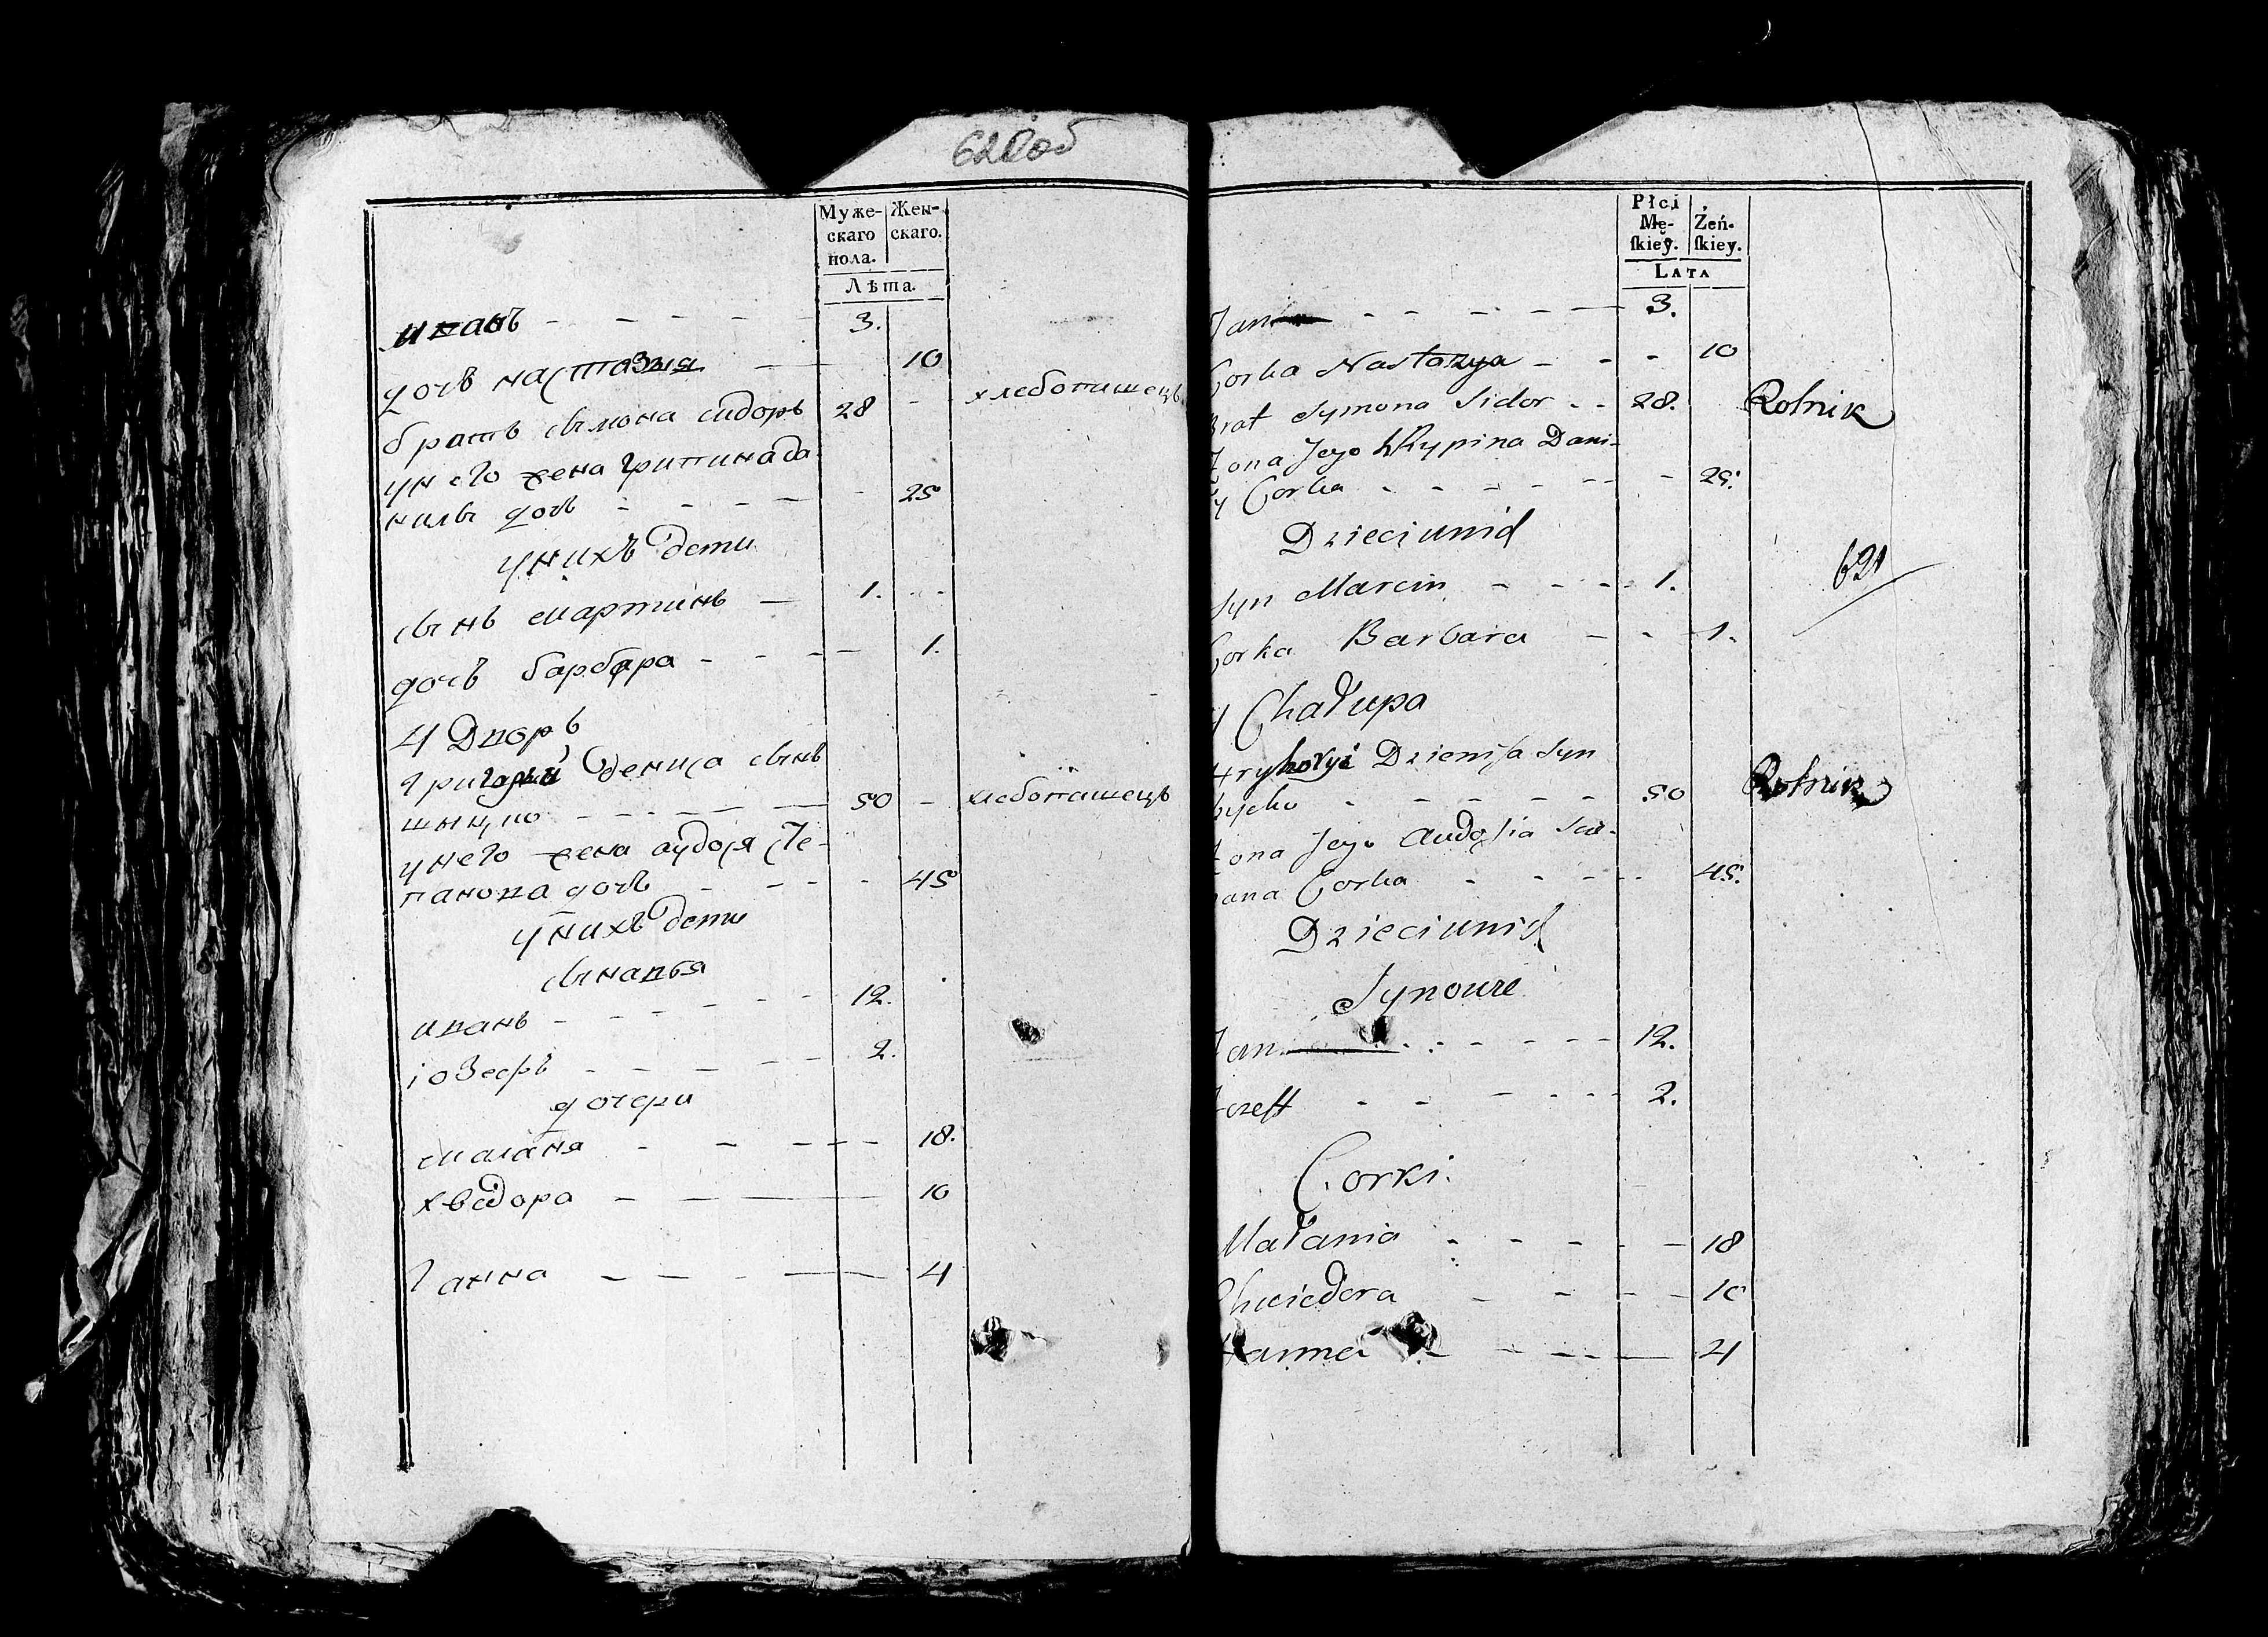 620об
Муже-
скаго
пола.
Жен-
скаго.
Лѣта.
иванъ - - - - - 3.
дочь настазия - - 10
братъ сымона сидоръ 28 - хлебопашецъ
у него жена грипина да
нилы дочь - - - - - 25
у нихъ дети
сынъ мартинъ - 1. - -
дочь барбара - - - - 1.
4 Дворъ
григорый дениса сынъ
- - - - - 50 - хлебопашецъ
у него жена аудося сте-
панова дочь - - - - 45
у нихъ дети
сыновья
иванъ - - - - - - 12.
іозефъ - - - - - - 2.
дочери
маланя - - - - - 18.
хведора - - - - 10
ганна - - - - - 4
Płci
Mę-
ſkiey.
Żeń-
ſkiey.
LATA
Jan - - - - - 3.
Corka Nastazya - - - 10
Brat Symona Sidor - - 28. Rolnik
Żona Jego Hrypina Dani-
ły Corka - - - - - - - 25.
Dzieci unich
Syn Marcin - - - - 1.
Corka Barbara - - 1.
621
4 Chałupa
Hryhoryi Dzienisa Syn
- - - - - - 50 Rolnik
Żona Jego Audosia Ste-
pana Corka - - - - - 45.
Dzieci unich
Synowie
Jan - - - - - - 12.
Jozeff - - - - - - 2.
Corki.
Małania - - - - - 18
Chwiedora - - - - 10
Hanna - - - - - 4